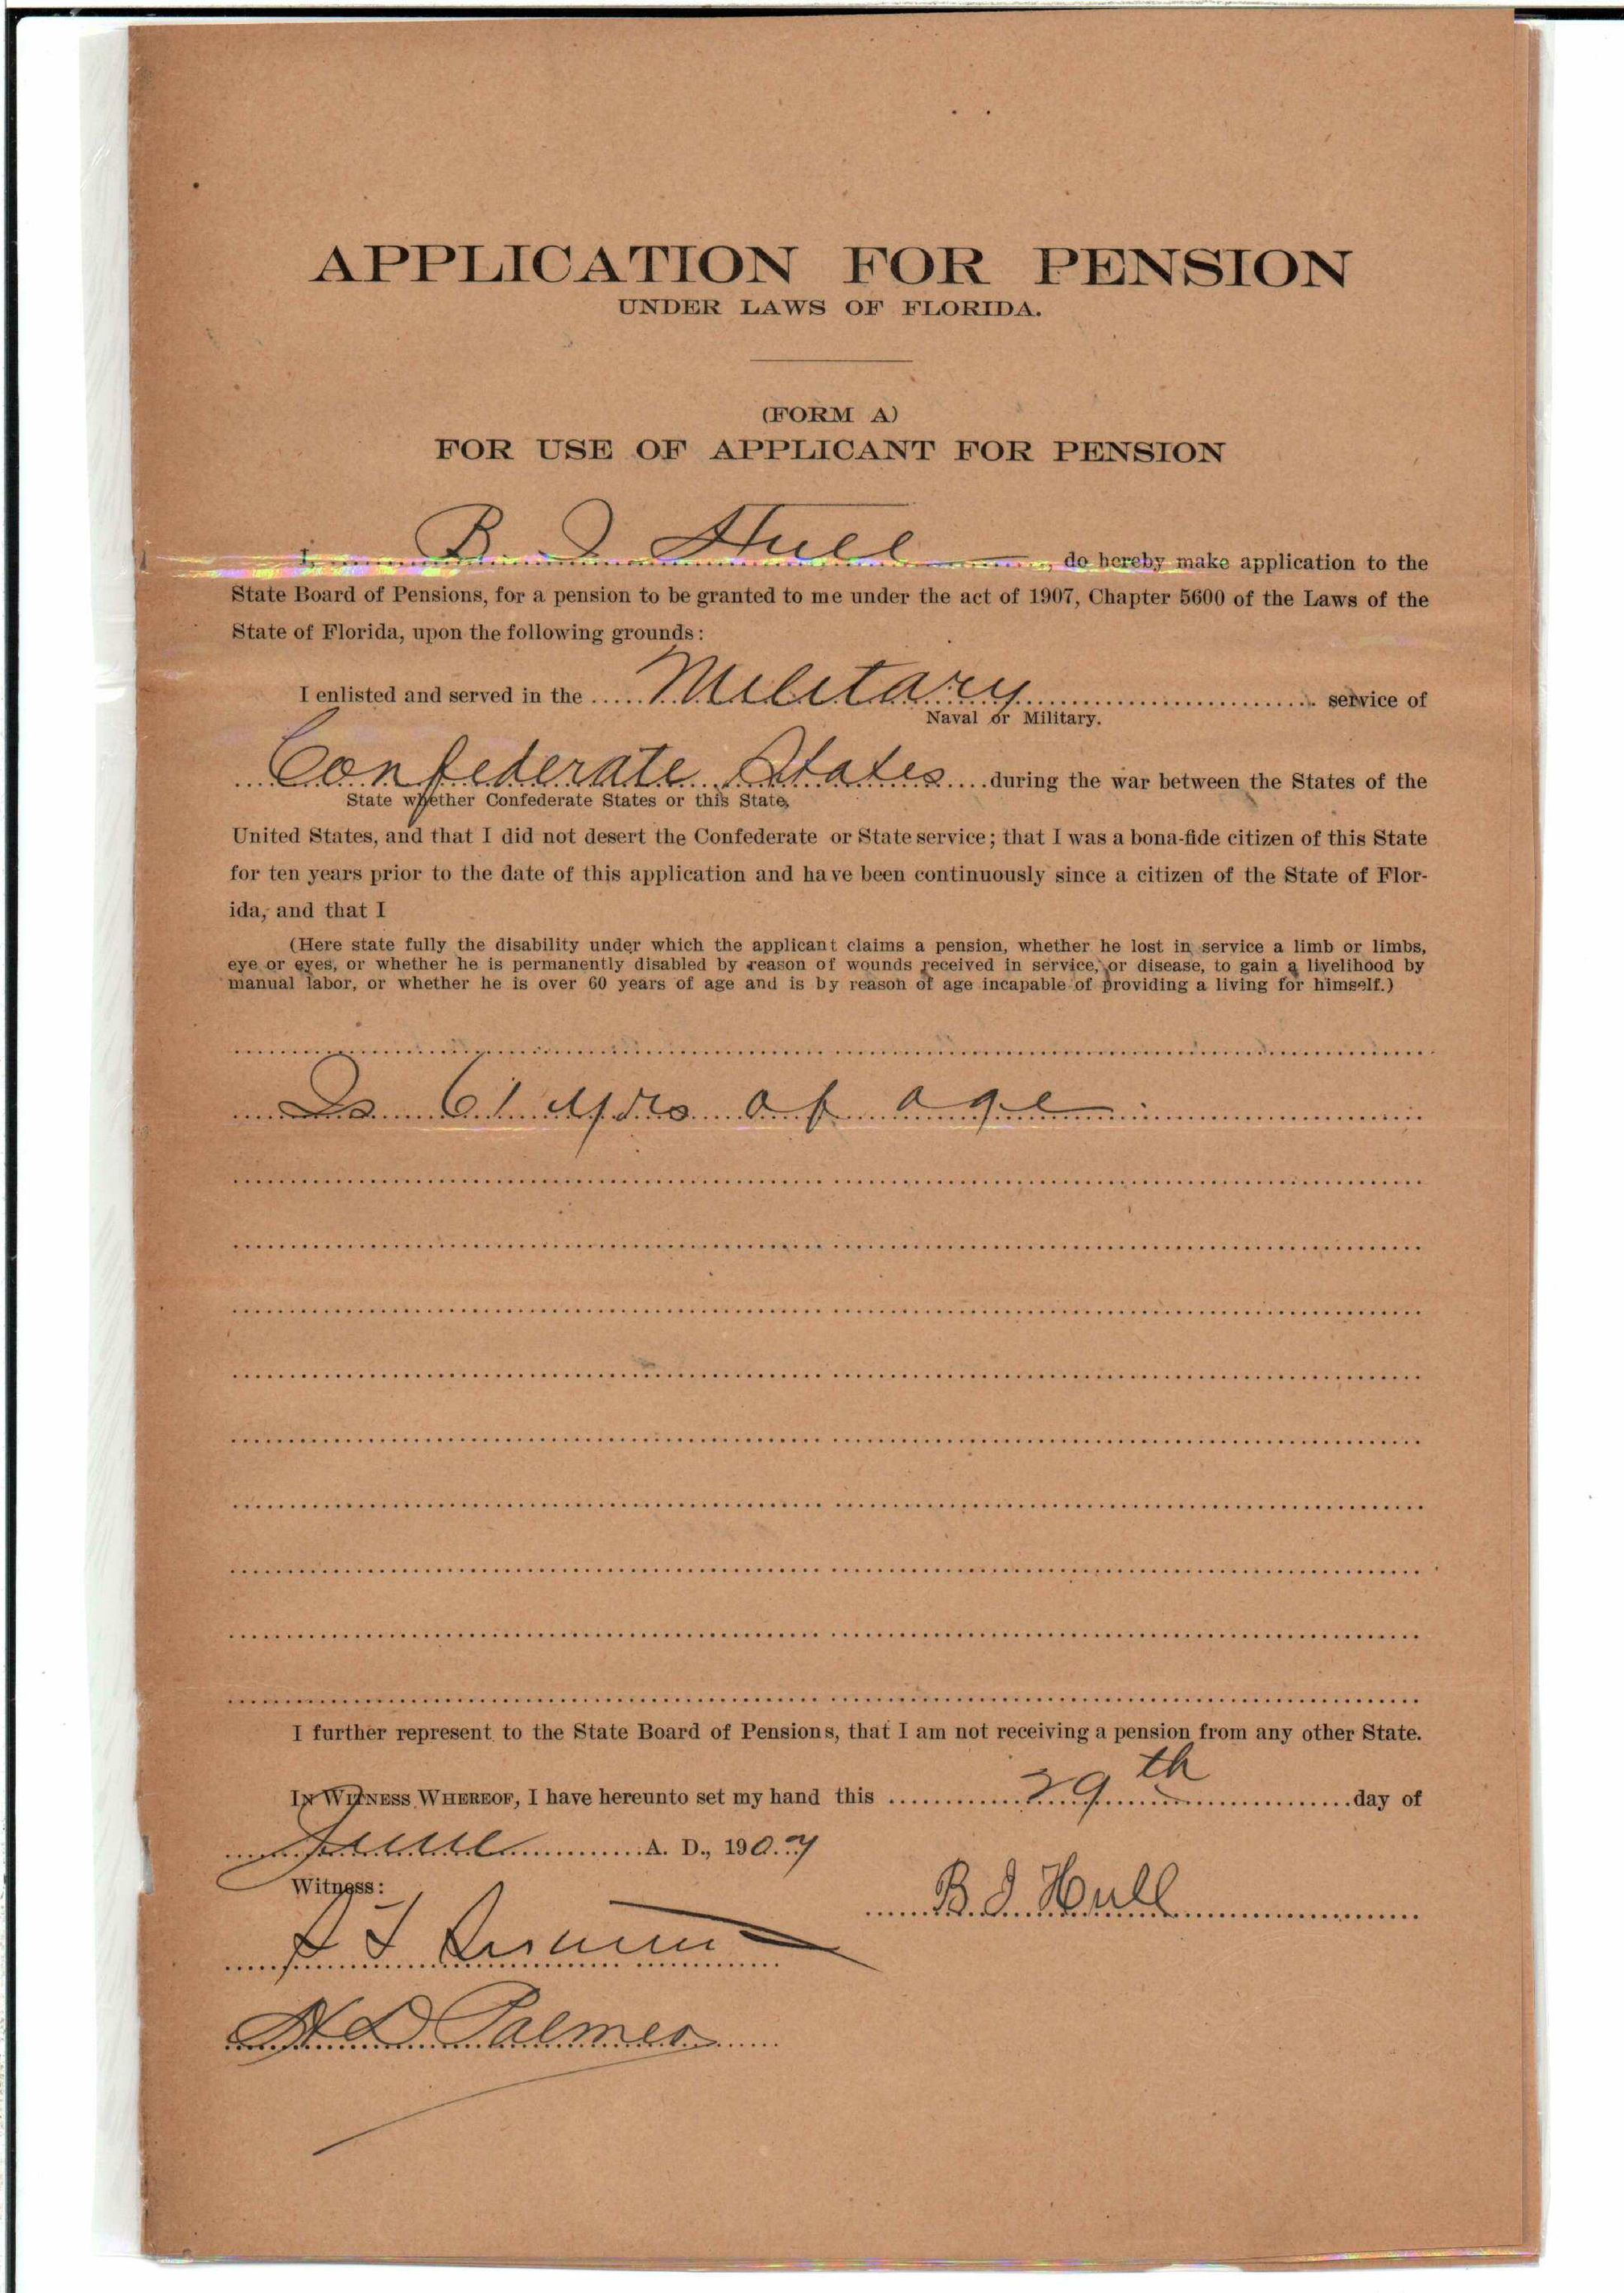 APPLICATION FOR PENSION
UNDER LAWS OF FLORIDA.
(FORM A)
FOR USE OF APPLICANT FOR PENSION
I, B. J. Hull, do hereby make application to the
State Board of Pensions, for a pension to be granted to me under the act of 1907, Chapter 5600 of the Laws of the
State of Florida, upon the following grounds:
I enlisted and served in the Military service of
Naval or Military.
Confederate States during the war between the States of the
State whether Confederate States or this State.
United States, and that I did not desert the Confederate or State service; that I was a bona-fide citizen of this State
for ten years prior to the date of this application and have been continuously since a citizen of the State of Flor-
ida, and that I
(Here state fully the disability under which the applicant claims a pension, whether he lost in service a limb or limbs,
eye or eyes, or whether he is permanently disabled by reason of wounds received in service, or disease, to gain a livelihood by
manual labor, or whether he is over 60 years of age and is by reason of age incapable of providing a living for himself.)
Is 61 yrs of age
I further represent to the State Board of Pensions, that I am not receiving a pension from any other State.
IN WITNESS WHEREOF, I have hereunto set my hand this 29th day of
June A. D., 1907
Witness:
B. J. Hull
H D Palmer